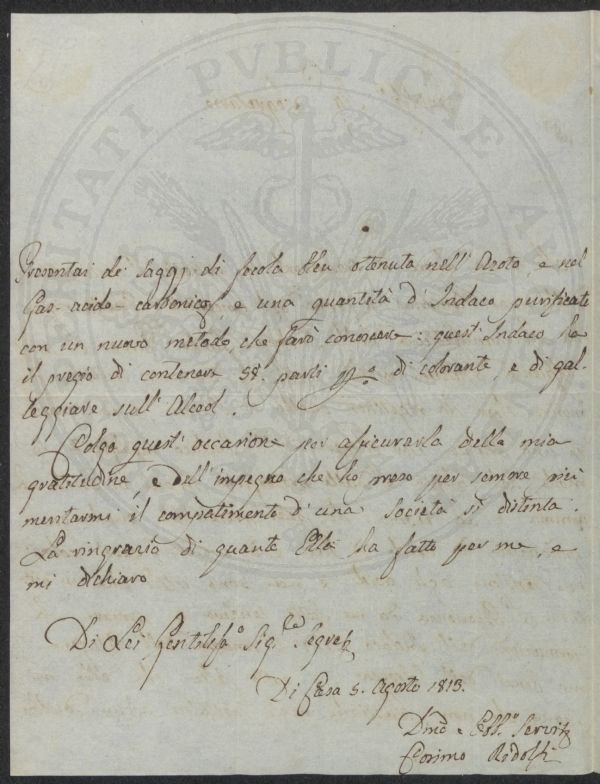 VERITATI PVBLICAE
Presentai de' saggi di fecola bleu ottenuta nell' Azoto, e nel
Gas-acido-carbonico, e una quantità d' Indaco purificato
con un nuovo metodo, che farò conoscere: quest' Indaco ha
il pregio di contenere 58. parti di colorante, e di gal-
leggiare sull' Alcool.
Colgo quest' occasione per assicurarla della mia
gratitudine, e dell' impegno che ho preso per sempre più
meritarmi il compatimento d' una Società sì distinta.
La ringrazio di quanto Ella ha fatto per me, e
mi dichiaro
Di Lei Gentiliss.o Sig.re Segret.
Di Casa 5. Agosto 1813.
Dmo e Obb.o Servit.
Cosimo Ridolfi